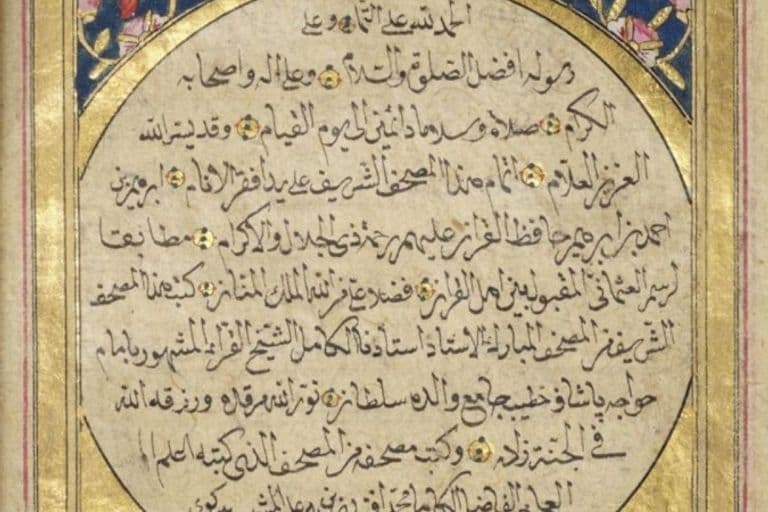 الحمد لله على التمام وعلى
رسوله افضل الصلوة والسلام وعلى اله واصحابه
الكرام صلاة وسلاما دائمين الى يوم القيام وقد يسر الله
العزيز العلام اتمام هذا المصحف الشريف على يد افقر الانام ابرهيم بن
احمد بن ابرهيم حافظ القران عليهم رحمة ذى الجلال والاكرام مطابقا
لرسم العثمانى المقبول بين اهل القران فضلا من الله الملك المنان كتب هذا المصحف
الشريف من المصحف المبارك لاستاذ استاذنا الكامل الشيخ القراء المشهور بامام
خواجه پاشا وخطيب جامع والده سلطان نور الله مرقده ورزقه الله
فى الجنة زاده وكتب مصحفه من المصحف الذى كتبه اعلم
العلماء الفاضل الكامل محمد